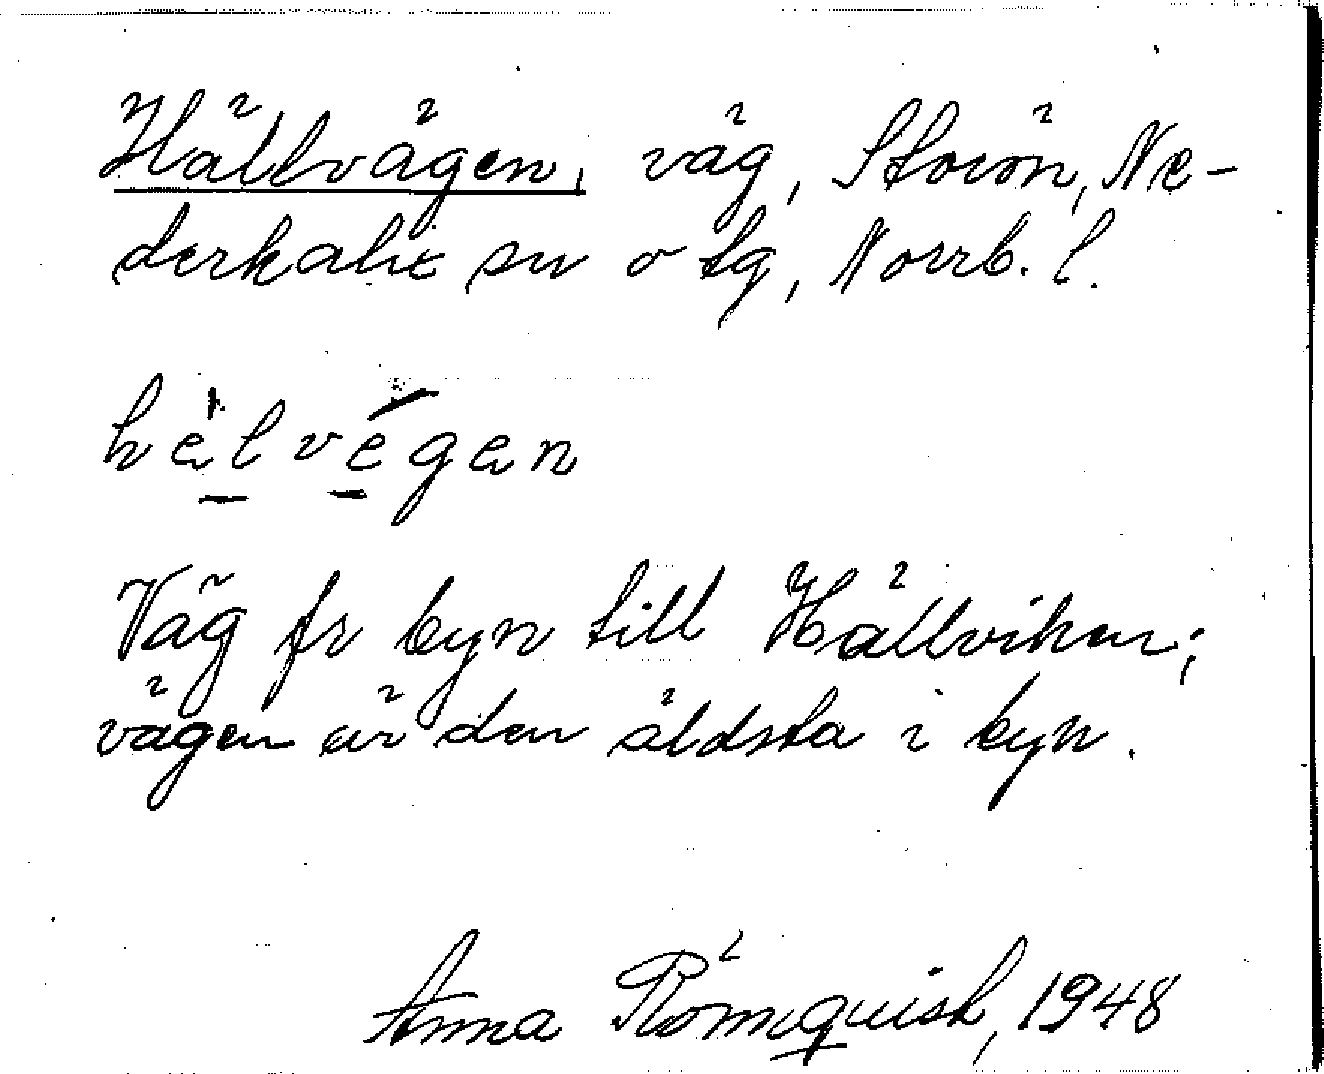 Hällvägen, väg, Storön, Ne-
derkalix sn o tg, Norrb. l.
hèlvégen
Väg fr byn till Hällviken;
vägen är den äldsta i byn.
Anna Römquist, 1948